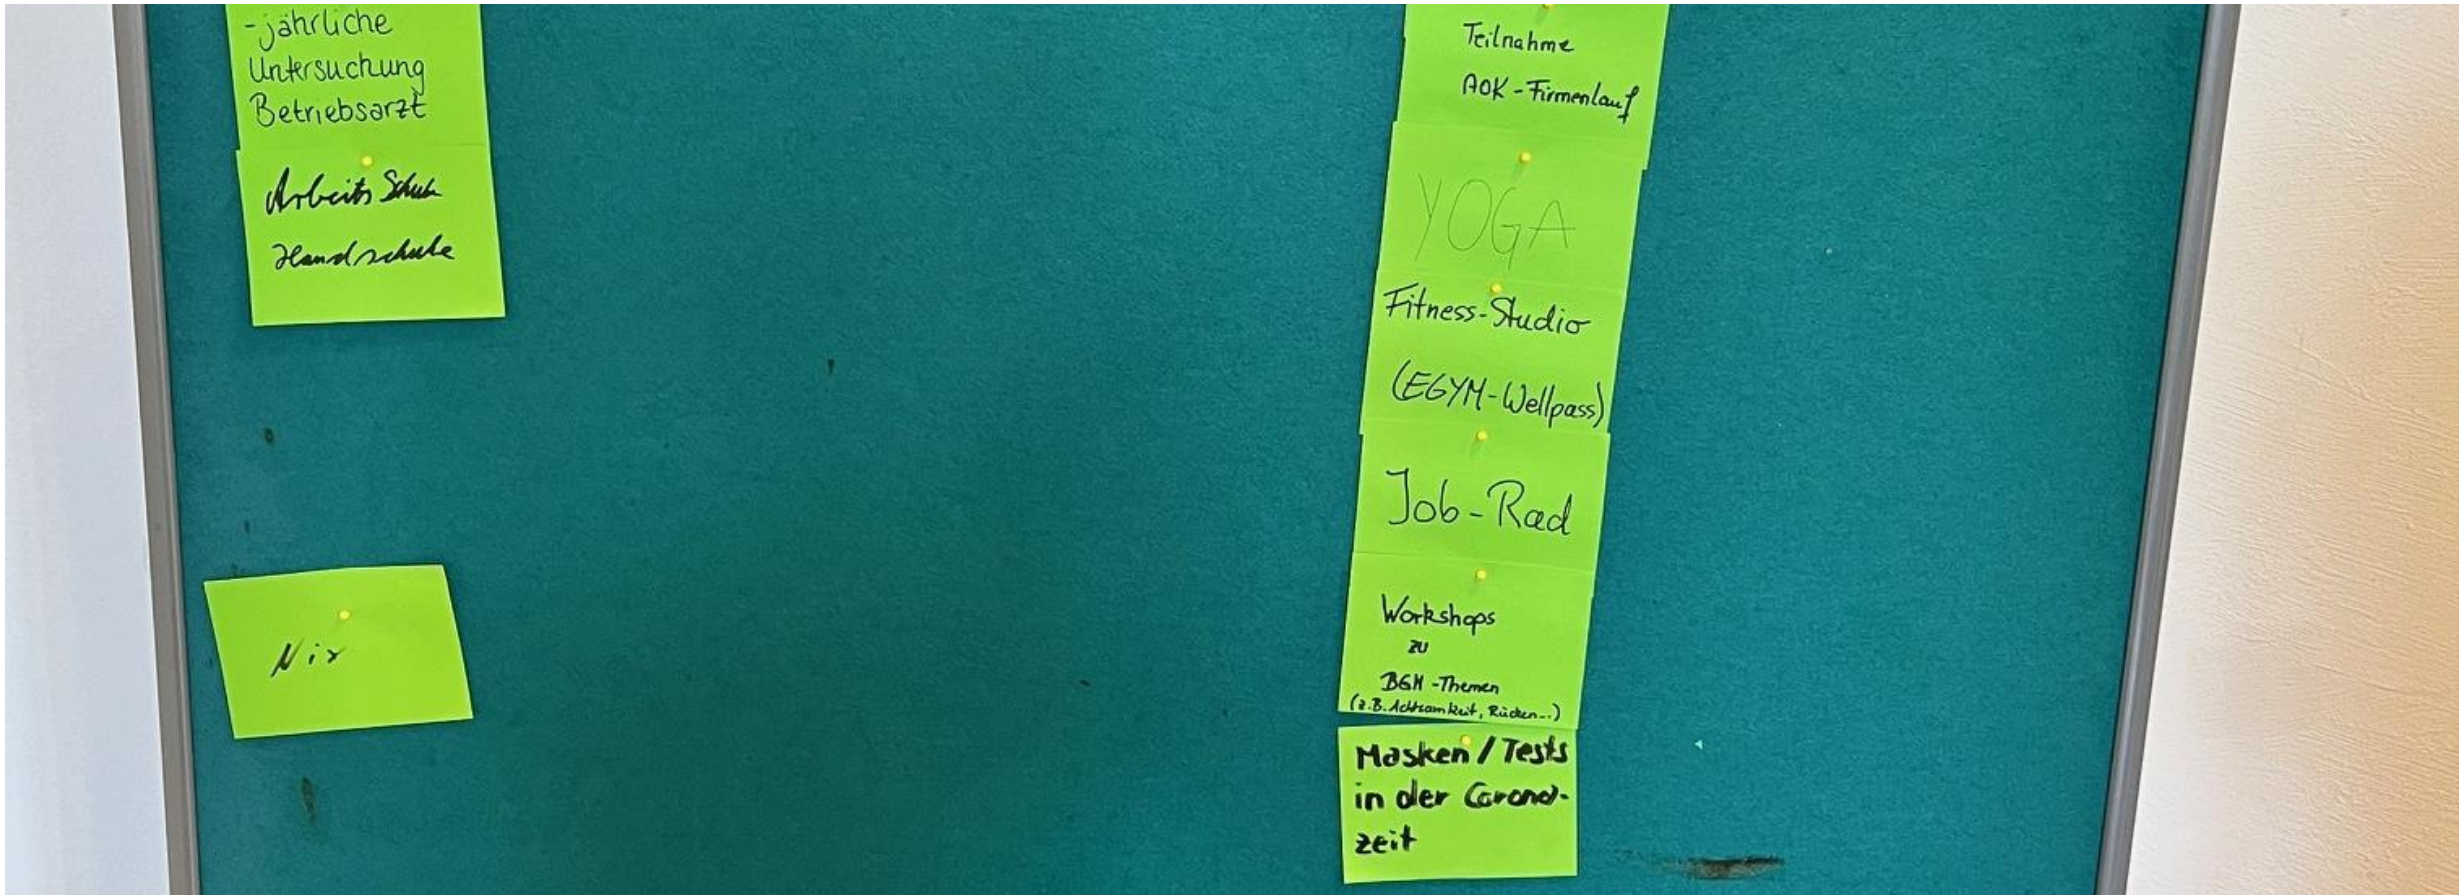 -jährliche
Untersuchung
Betriebsarzt
Arbeits Schuhe
Handschuhe
Nix
Teilnahme
AOK-Firmenlauf
YOGA
Fitness-Studio
(EGYM-Wellpass)
Job-Rad
Workshops
zu
BGM-Themen
(z.B. Achtsamkeit, Rücken...)
Masken / Tests
in der Corona-
zeit